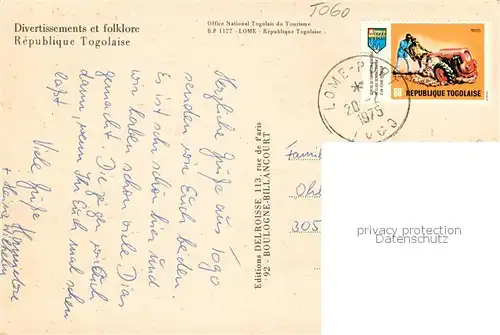 TOGO
Divertissements et folklore
République Togolaise
Office National Togolais du Tourisme
B.P 1177 - LOME - République Togolaise
Herzliche Grüße aus Togo
senden wir Euch beiden.
Es ist sehr schön hier und
wir haben schon viele Dias
gemacht. Die zeigen wir Euch
dann, wenn Ihr Euch mal sehen
laßt
Viele Grüße Hannelore
+ Hans Wilhelm
Editions DELROISSE 113, rue de Paris
92 - BOULOGNE-BILLANCOURT
LOME-P.P.
20
1975
TOGO
50 REPUBLIQUE TOGOLAISE
Famil
Ohl
305
privacy protection
Datenschutz